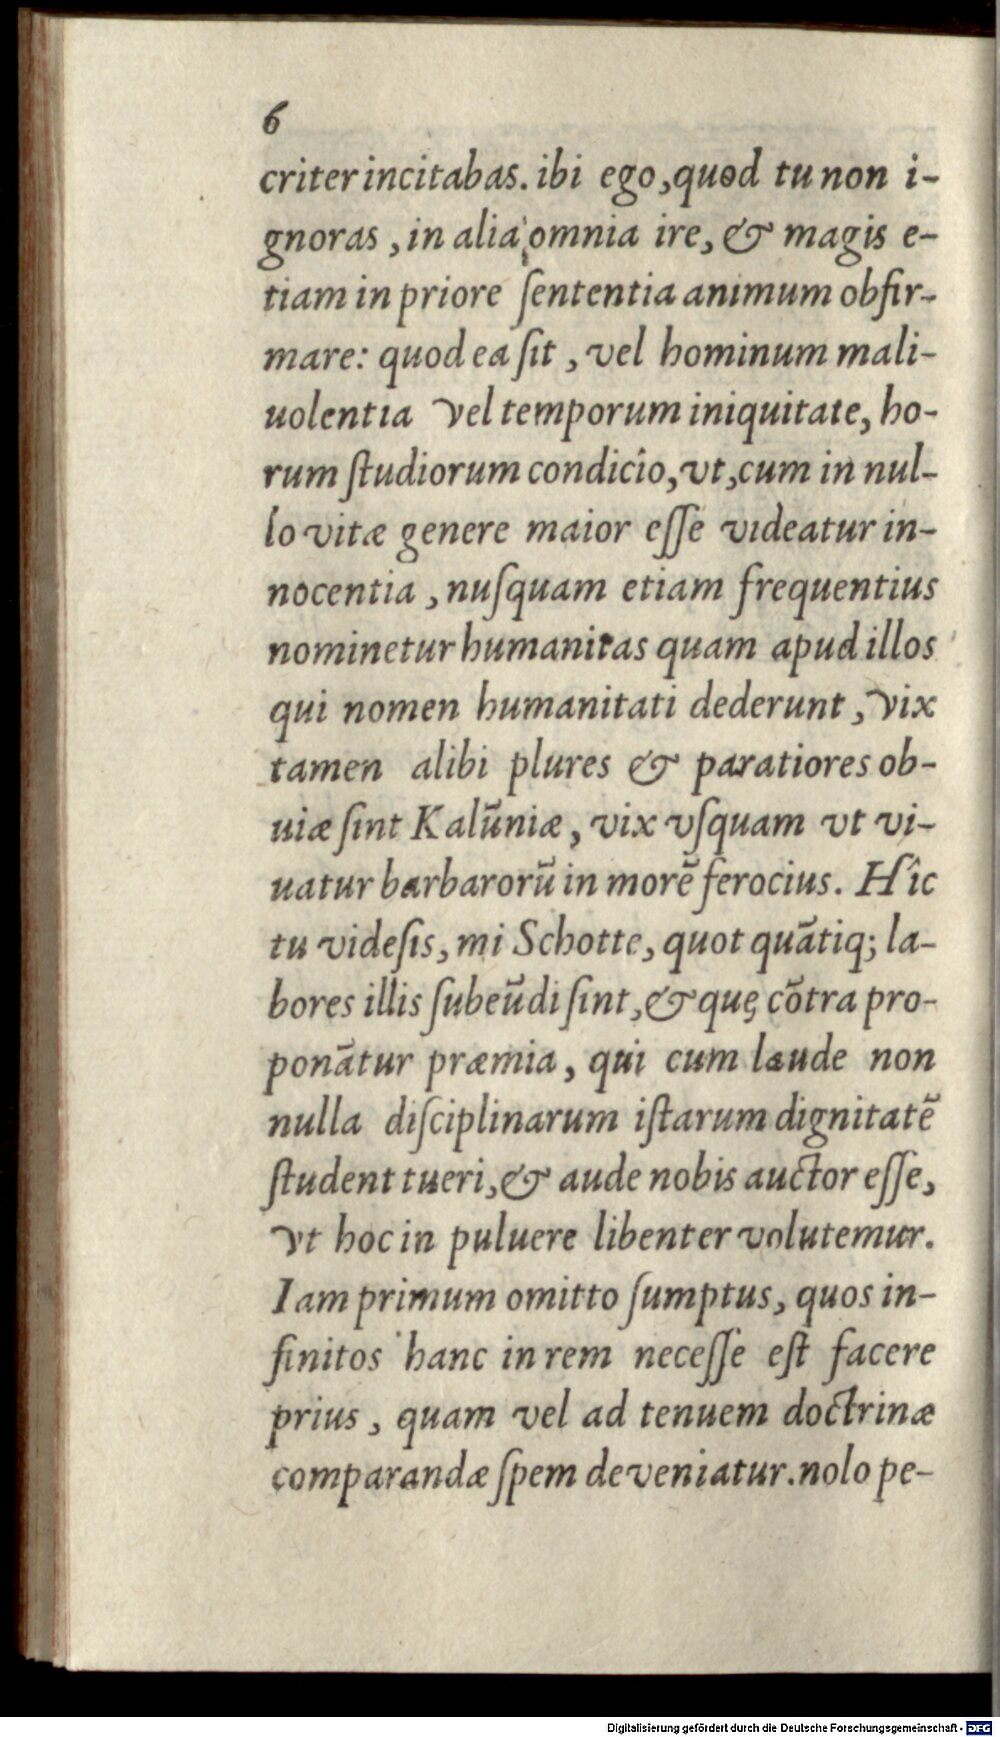 6
criter incitabas. ibi ego, quod tu non i-
gnoras, in alia omnia ire, & magis e-
tiam in priore ſententia animum obfir-
mare: quod ea ſit, vel hominum mali-
uolentia vel temporum iniquitate, ho-
rum ſtudiorum condicio, vt, cum in nul-
lo vitæ genere maior eſſe videatur in-
nocentia, nuſquam etiam frequentius
nominetur humanitas quam apud illos
qui nomen humanitati dederunt, vix
tamen alibi plures & paratiores ob-
uiæ ſint Kalũniæ, vix vſquam vt vi-
uatur barbarorũ in morẽ ferocius. Hîc
tu videſis, mi Schotte, quot quãtiq; la-
bores illis ſubeũdi ſint, & quę cõtra pro-
ponãtur præmia, qui cum laude non
nulla diſciplinarum iſtarum dignitatẽ
ſtudent tueri, & aude nobis auctor eſſe,
vt hoc in puluere libenter volutemur.
Iam primum omitto ſumptus, quos in-
finitos hanc in rem neceſſe eſt facere
prius, quam vel ad tenuem doctrinæ
comparandæ ſpem deveniatur. nolo pe-
Digitalisierung gefördert durch die Deutsche Forschungsgemeinschaft - DFG